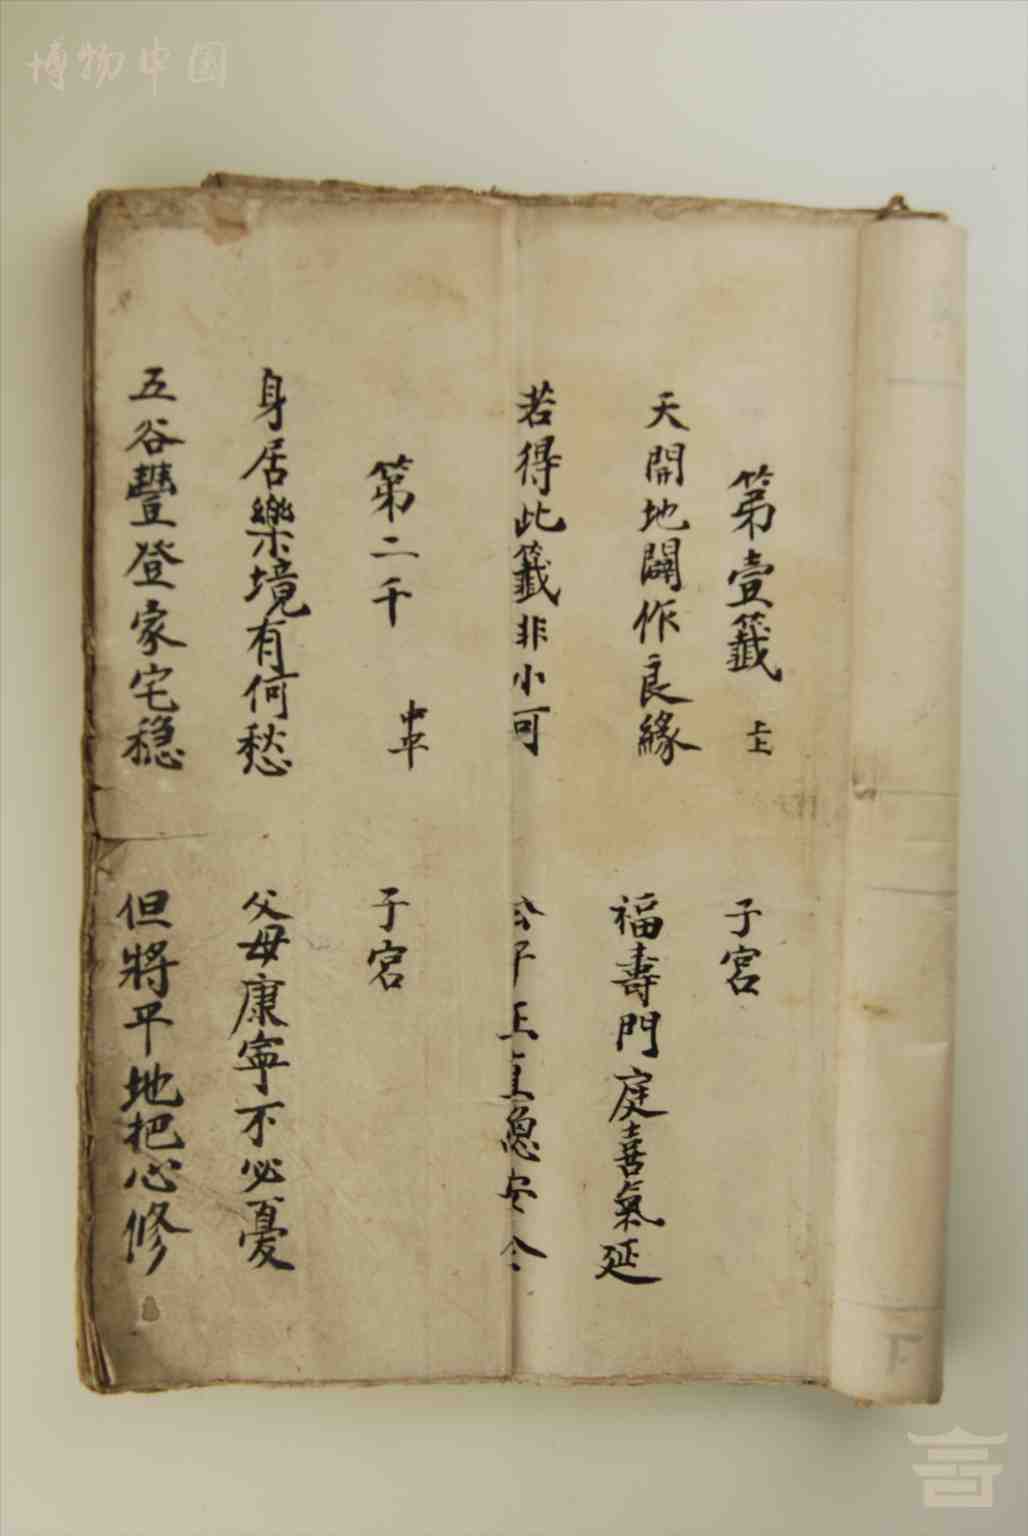 博物中国
第壹籤 上上 子宮
天開地闢作良緣 福壽門庭喜氣延
若得此籤非小可 公平正直安全
第二千 中平 子宮
身居樂境有何愁 父母康寧不必憂
五谷豐登家宅穩 但將平地把心修